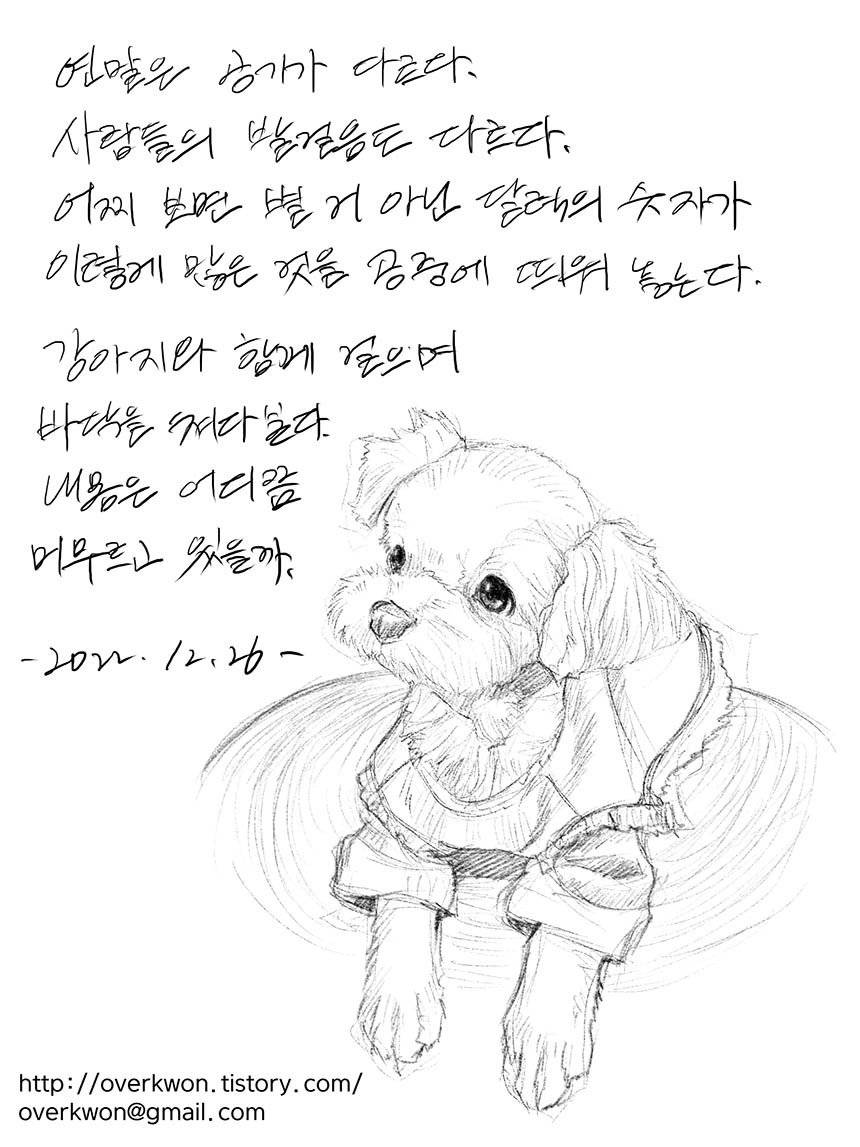 연말은 공기가 다르다.
사람들의 발걸음도 다르다.
어찌 보면 별 거 아닌 달력의 숫자가
이렇게 많은 것을 공중에 띄워 놓는다.
강아지와 함께 걸으며
바닥을 쳐다본다.
내 몸은 어디쯤
머무르고 있을까.
-2022. 12. 26-
http://overkwon.tistory.com/
overkwon@gmail.com